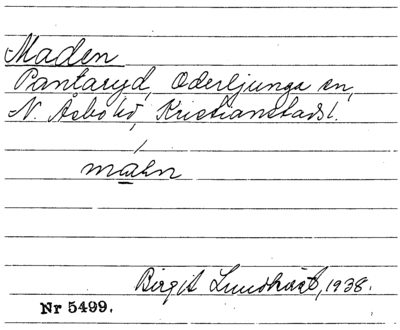 Maden
Pantaryd, Oderljunga sn,
N. Åsbo hd, Kristianstads l.
maln
Birgit Lundkvist, 1938.
Nr 5499.